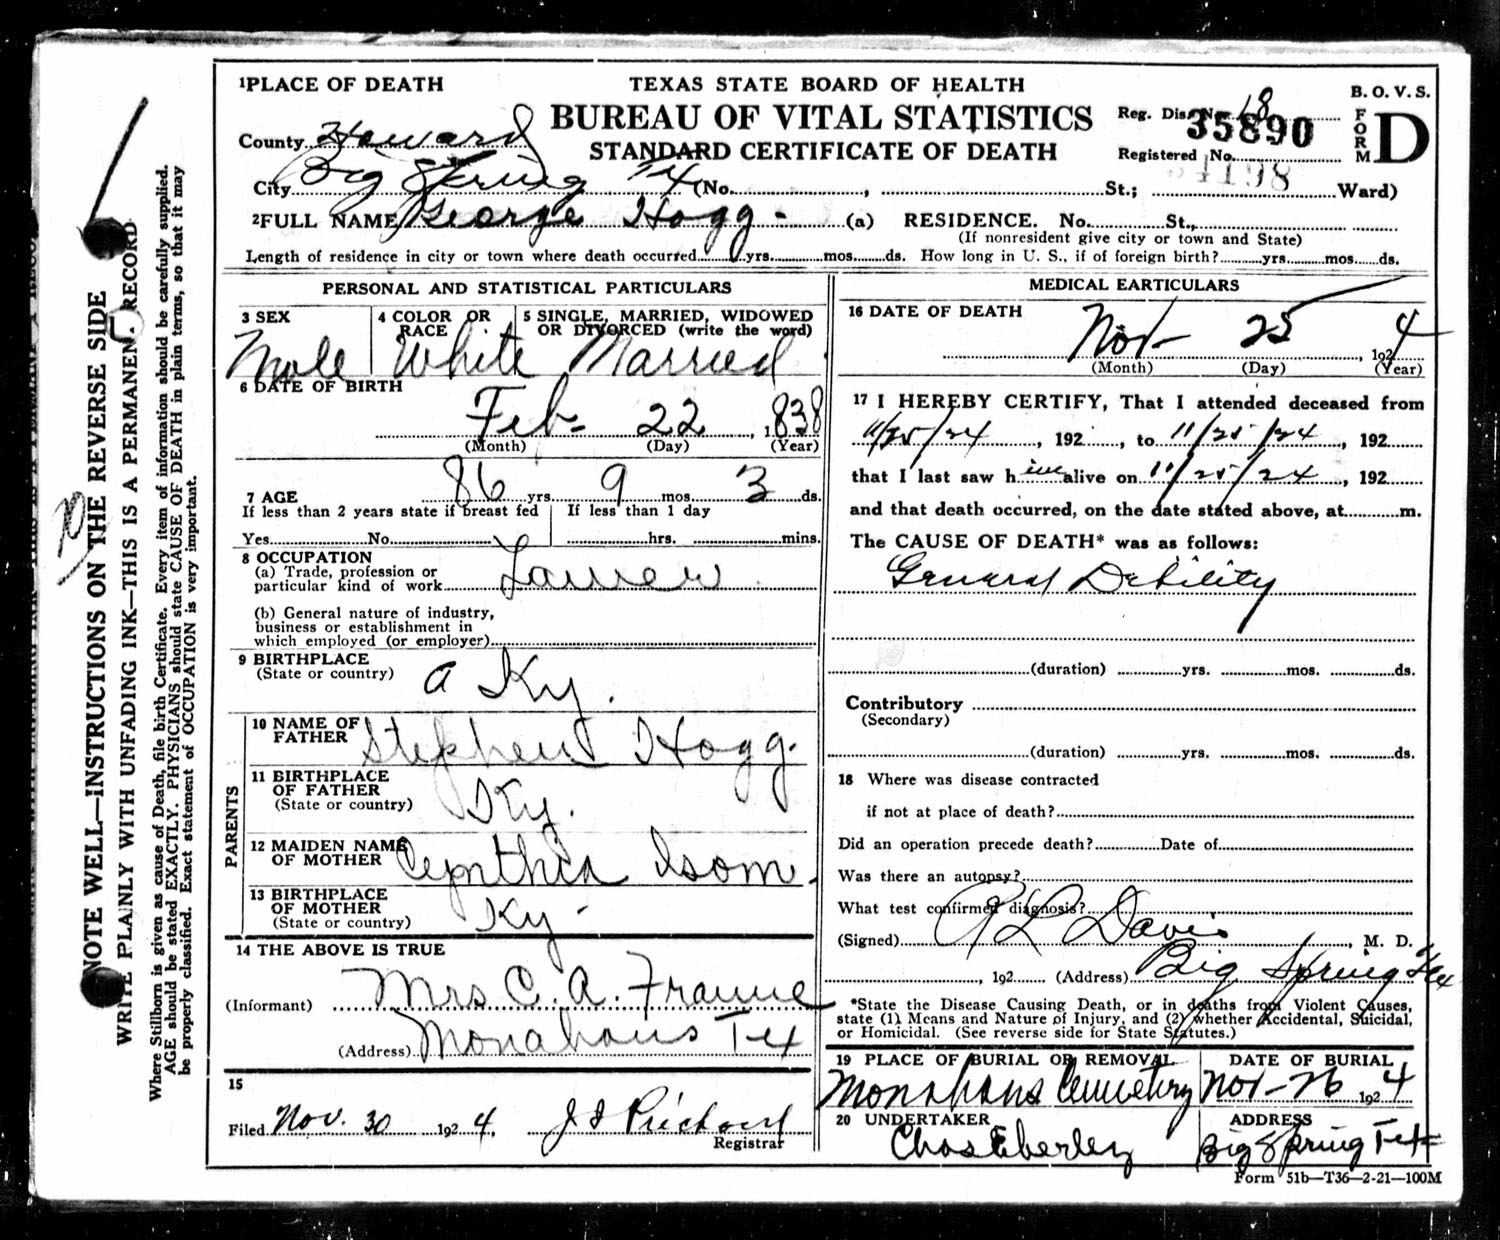 NOTE WELL—INSTRUCTIONS ON THE REVERSE SIDE
WRITE PLAINLY WITH UNFADING INK—THIS IS A PERMANENT RECORD
Where Stillborn is given as cause of Death, file birth Certificate. Every item of information should be carefully supplied.
AGE should be stated EXACTLY. PHYSICIANS should state CAUSE OF DEATH in plain terms, so that it may
be properly classified. Exact statement of OCCUPATION is very important.
TEXAS STATE BOARD OF HEALTH
BUREAU OF VITAL STATISTICS
STANDARD CERTIFICATE OF DEATH
B. O. V. S.
FORM D
Reg. Dis. No. 18
35890
Registered No.
34198
1 PLACE OF DEATH
County Howard
City Big Spring Tx (No. , St.; Ward)
2 FULL NAME George Hogg - (a) RESIDENCE. No. St.,
(If nonresident give city or town and State)
Length of residence in city or town where death occurred yrs. mos. ds. How long in U. S., if of foreign birth? yrs. mos. ds.
PERSONAL AND STATISTICAL PARTICULARS
3 SEX 4 COLOR OR RACE 5 SINGLE, MARRIED, WIDOWED OR DIVORCED (write the word)
Male White Married
6 DATE OF BIRTH
Feb- 22, 1838
(Month) (Day) (Year)
7 AGE 86 yrs 9 mos. 3 ds.
If less than 2 years state if breast fed If less than 1 day
Yes No hrs. mins.
8 OCCUPATION
(a) Trade, profession or
particular kind of work
(b) General nature of industry,
business or establishment in
which employed (or employer)
9 BIRTHPLACE
(State or country) a Ky.
PARENTS
10 NAME OF FATHER Stephen Hogg.
11 BIRTHPLACE OF FATHER
(State or country) Ky.
12 MAIDEN NAME OF MOTHER Cynthia Isom.
13 BIRTHPLACE OF MOTHER
(State or country) Ky-
14 THE ABOVE IS TRUE
(Informant) Mrs. C. A.
(Address) Monahans Tex
15
Filed Nov. 30 1924.
Registrar
MEDICAL EARTICULARS
16 DATE OF DEATH
Nov- 25, 1924
(Month) (Day) (Year)
17 I HEREBY CERTIFY, That I attended deceased from
11/25/24, 192 , to 11/25/24, 192
that I last saw him alive on 11/25/24, 192
and that death occurred, on the date stated above, at m.
The CAUSE OF DEATH* was as follows:
General Debility
(duration) yrs. mos. ds.
Contributory
(Secondary)
(duration) yrs. mos. ds.
18 Where was disease contracted
if not at place of death?
Did an operation precede death? Date of
Was there an autopsy?
What test confirmed diagnosis?
(Signed) Davis, M. D.
, 192 (Address) Big Spring Tex
*State the Disease Causing Death, or in deaths from Violent Causes,
state (1) Means and Nature of Injury, and (2) whether Accidental, Suicidal,
or Homicidal. (See reverse side for State Statutes.)
19 PLACE OF BURIAL OR REMOVAL DATE OF BURIAL
Monahans Cemetery Nov-26 1924
20 UNDERTAKER ADDRESS
Chas Eberley Big Spring Tex
Form 51b—T36—2-21—100M